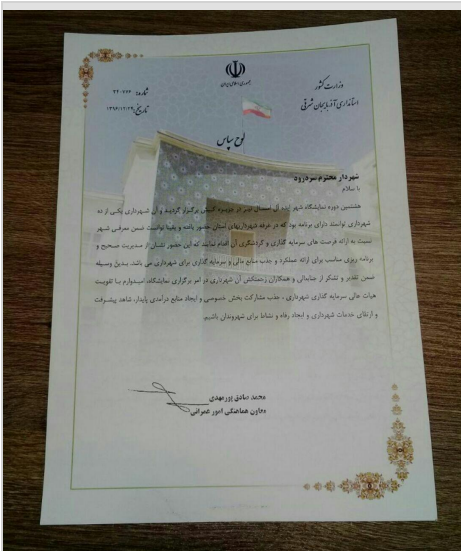 جمهوری اسلامی ایران
وزارت کشور
استانداری آذربایجان شرقی
شماره:
تاریخ: ۱۳۹۶/۱۲/۲۹
لوح سپاس
شهردار محترم سردرود
با سلام
هشتمین دوره نمایشگاه شهر ایده آل امسال نیز در جزیره کیش برگزار گردید و آن شهرداری یکی از ده
شهرداری توانمند دارای برنامه بود که در غرفه شهرداریهای استان حضور یافته و یقینا توانست ضمن معرفی شهر
نسبت به ارائه فرصت های سرمایه گذاری و گردشگری آن اقدام نمایند که این حضور نشان از مدیریت صحیح و
برنامه ریزی مناسب برای ارائه عملکرد و جذب منابع مالی و سرمایه گذاری برای شهرداری می باشد. بدین وسیله
ضمن تقدیر و تشکر از جنابعالی و همکاران زحمتکش آن شهرداری در امر برگزاری نمایشگاه، امیدوارم با تقویت
هیات عالی سرمایه گذاری شهرداری ، جذب مشارکت بخش خصوصی و ایجاد منابع درآمدی پایدار، شاهد پیشرفت
و ارتقای خدمات شهرداری و ایجاد رفاه و نشاط برای شهروندان باشیم.
محمد صادق پورمهدی
معاون هماهنگی امور عمرانی